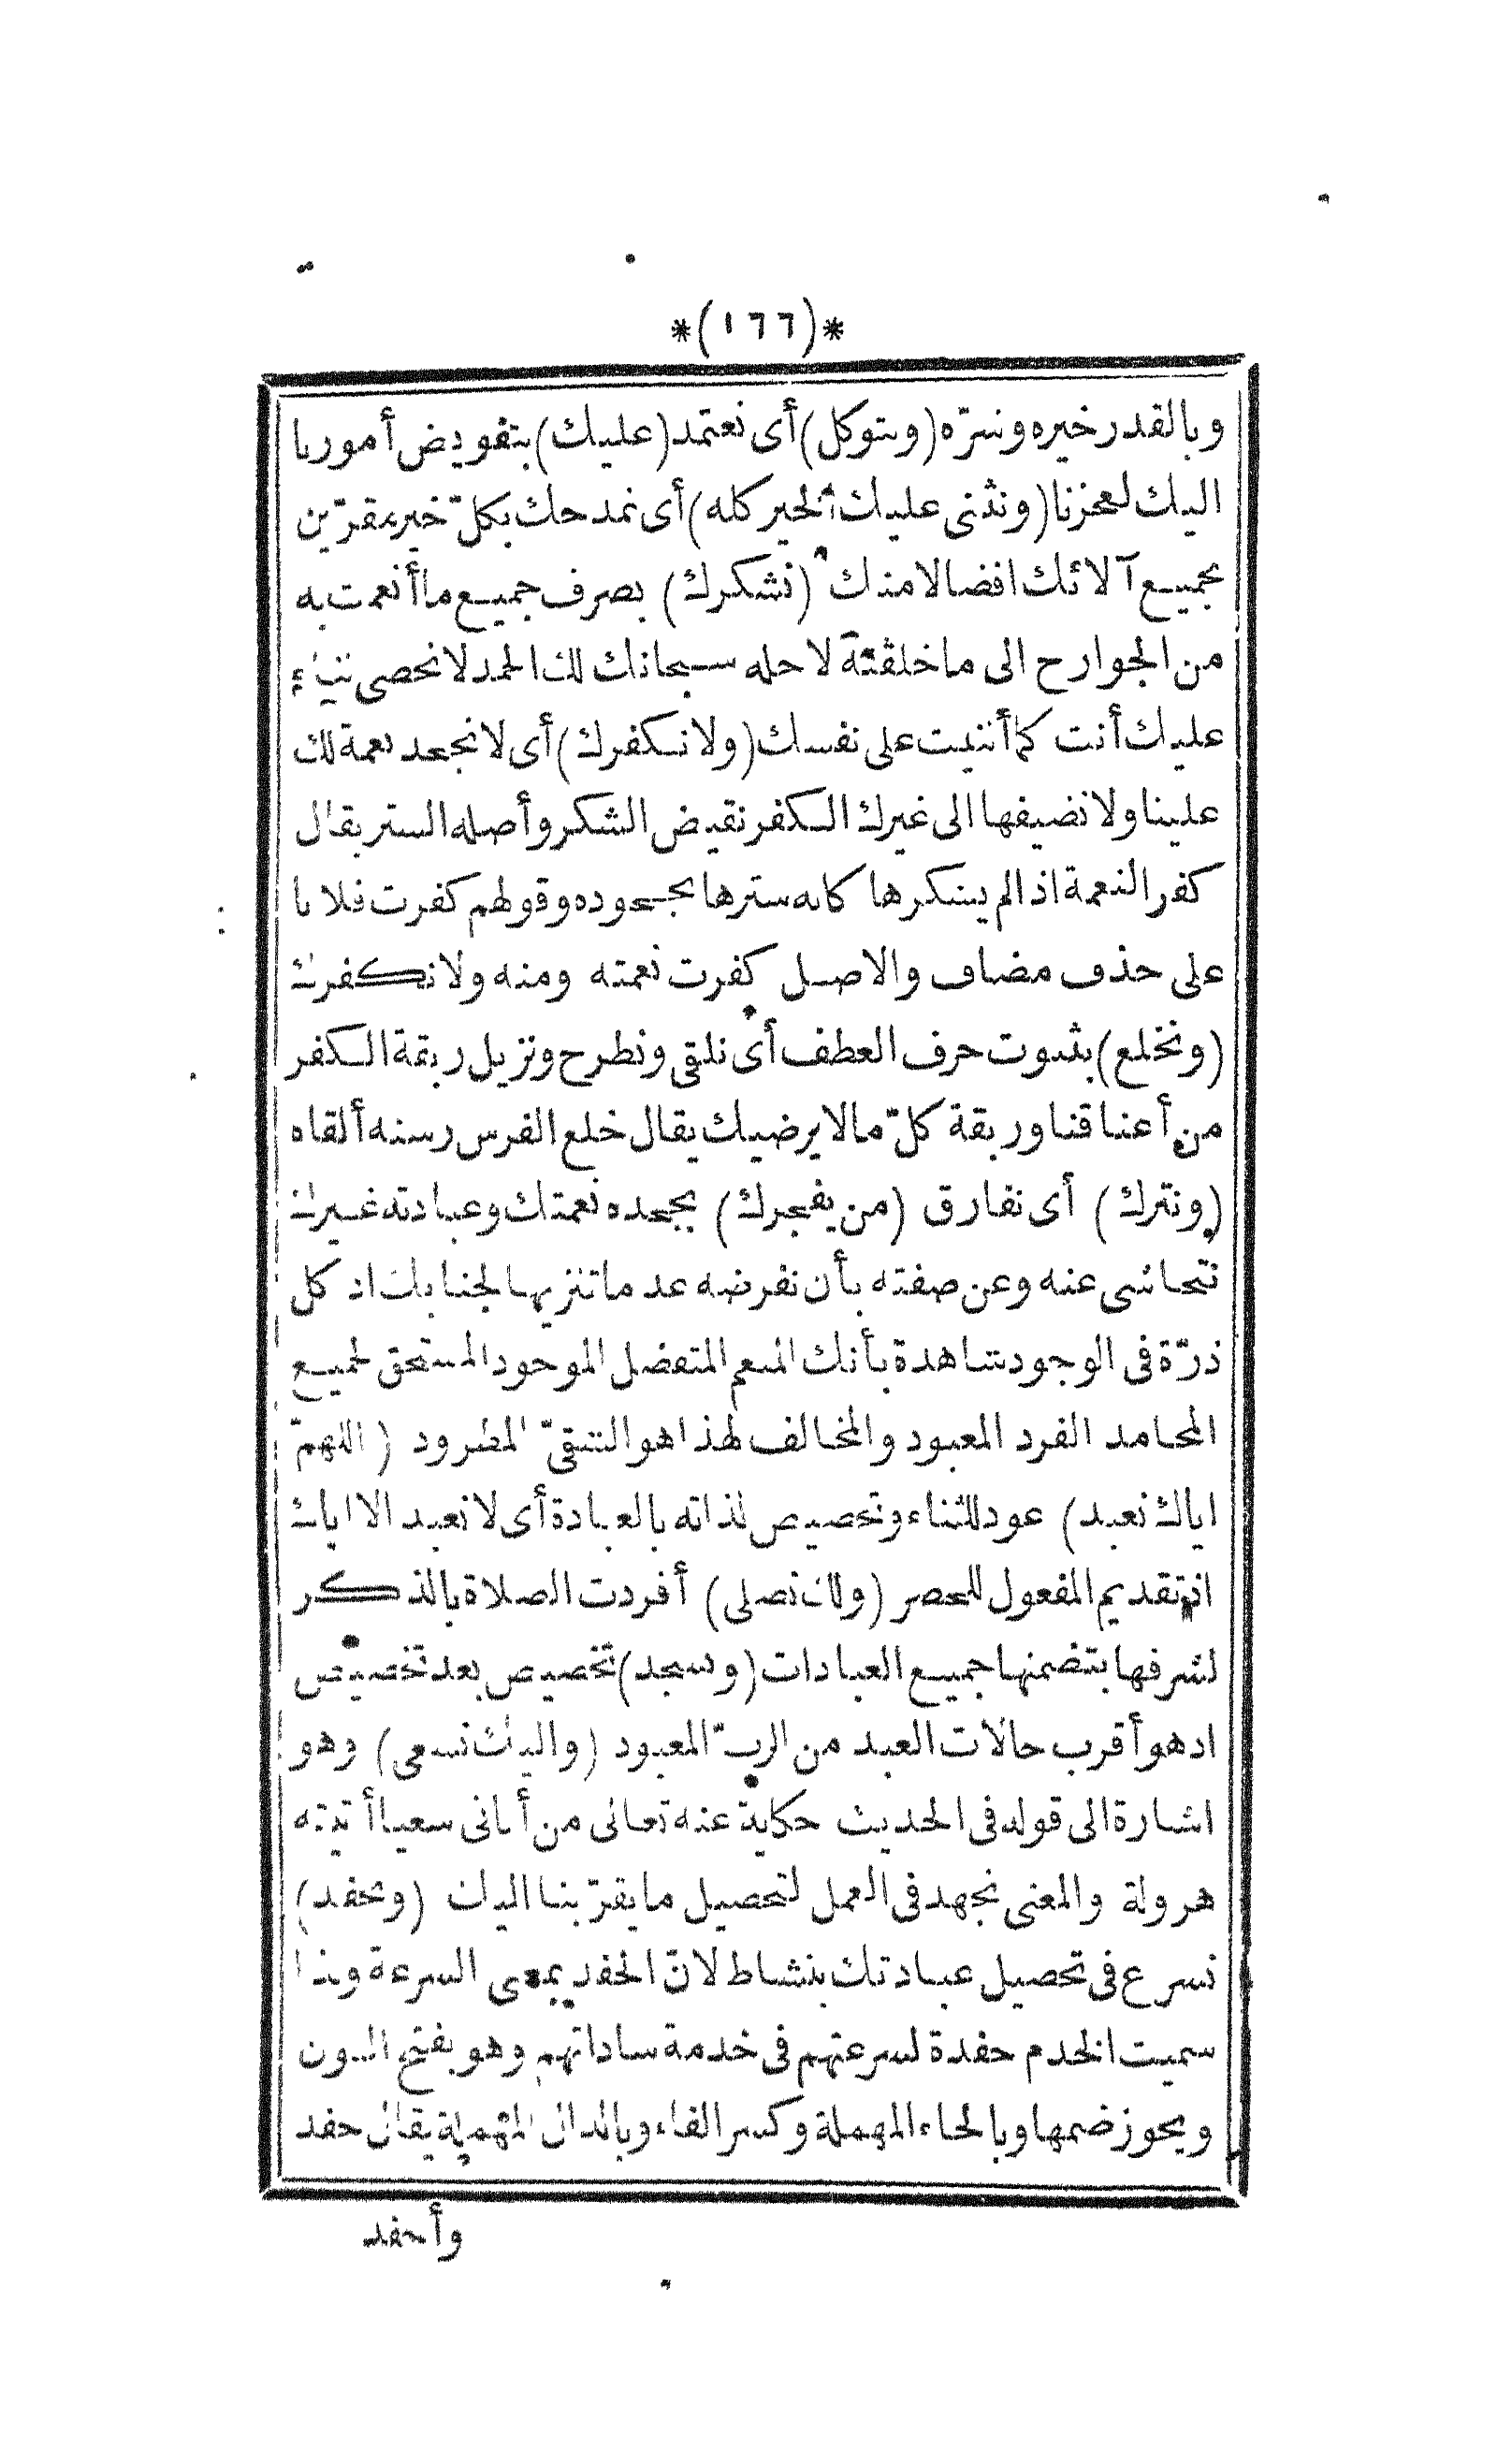 *(١٦٦)*
وبالقدر خيره وشرّه (ونتوكل) أى نعتمد (عليك) بتفويض أمورنا
اليك لعجزنا (ونثنى عليك الخير كله) أى نمدحك بكلّ خير مقرّين
بجميع آلائك افضالا منك (نشكرك) بصرف جميع ما أنعمت به
من الجوارح الى ما خلقته لاجله سبحانك لك الحمد لا نحصى ثناء
عليك أنت كما أثنيت على نفسك (ولا نكفرك) أى لا نجحد نعمة لك
علينا ولا نضيفها الى غيرك الكفر نقيض الشكر وأصله الستر يقال
كفر النعمة اذا لم يشكرها كانه سترها بجحوده وقولهم كفرت فلانا
على حذف مضاف والاصل كفرت نعمته ومنه ولا نكفرك
(ونخلع) بثبوت حرف العطف أى نلقى ونطرح ونزيل ربقة الكفر
من أعناقنا وربقة كلّ ما لا يرضيك يقال خلع الفرس رسنه ألقاه
(ونترك) أى نفارق (من يفجرك) بجحده نعمتك وعبادته غيرك
نتحاشى عنه وعن صفته بأن نفرضه عدما تنزيها لجنابك اذ كل
ذرّة فى الوجود شاهدة بأنك المنعم المتفضل الموجود المستحق لجميع
المحامد الفرد المعبود والمخالف لهذا هو الشقىّ المطرود (اللهمّ
اياك نعبد) عود للثناء وتخصيص لذاته بالعبادة أى لا نعبد الا اياك
اذ تقديم المفعول للحصر (ولك نصلى) أفردت الصلاة بالذكر
لشرفها بتضمنها جميع العبادات (ونسجد) تخصيص بعد تخصيص
اذ هو أقرب حالات العبد من الربّ المعبود (واليك نسعى) وهو
اشارة الى قوله فى الحديث حكاية عنه تعالى من أتانى سعيا أتيته
هرولة والمعنى نجهد فى العمل لتحصيل ما يقرّبنا اليك (ونحفد)
نسرع فى تحصيل عبادتك بنشاط لانّ الحفد بمعنى السرعة ولذا
سميت الخدم حفدة لسرعتهم فى خدمة ساداتهم وهو بفتح النون
ويجوز ضمها وبالحاء المهملة وكسر الفاء وبالدال المهملة يقال حفد
وأحفد